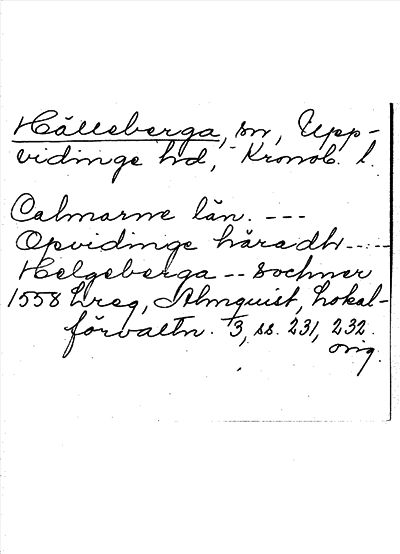 Hälleberga, sn, Upp-
vidinge hd, Kronob. l.
Calmarne län. ---
Opvidinge häradh -----
Helgeberga -- sochner
1558 hreg, Almquist, Lokal-
förvaltn. 1/3, ss. 231, 232.
orig.